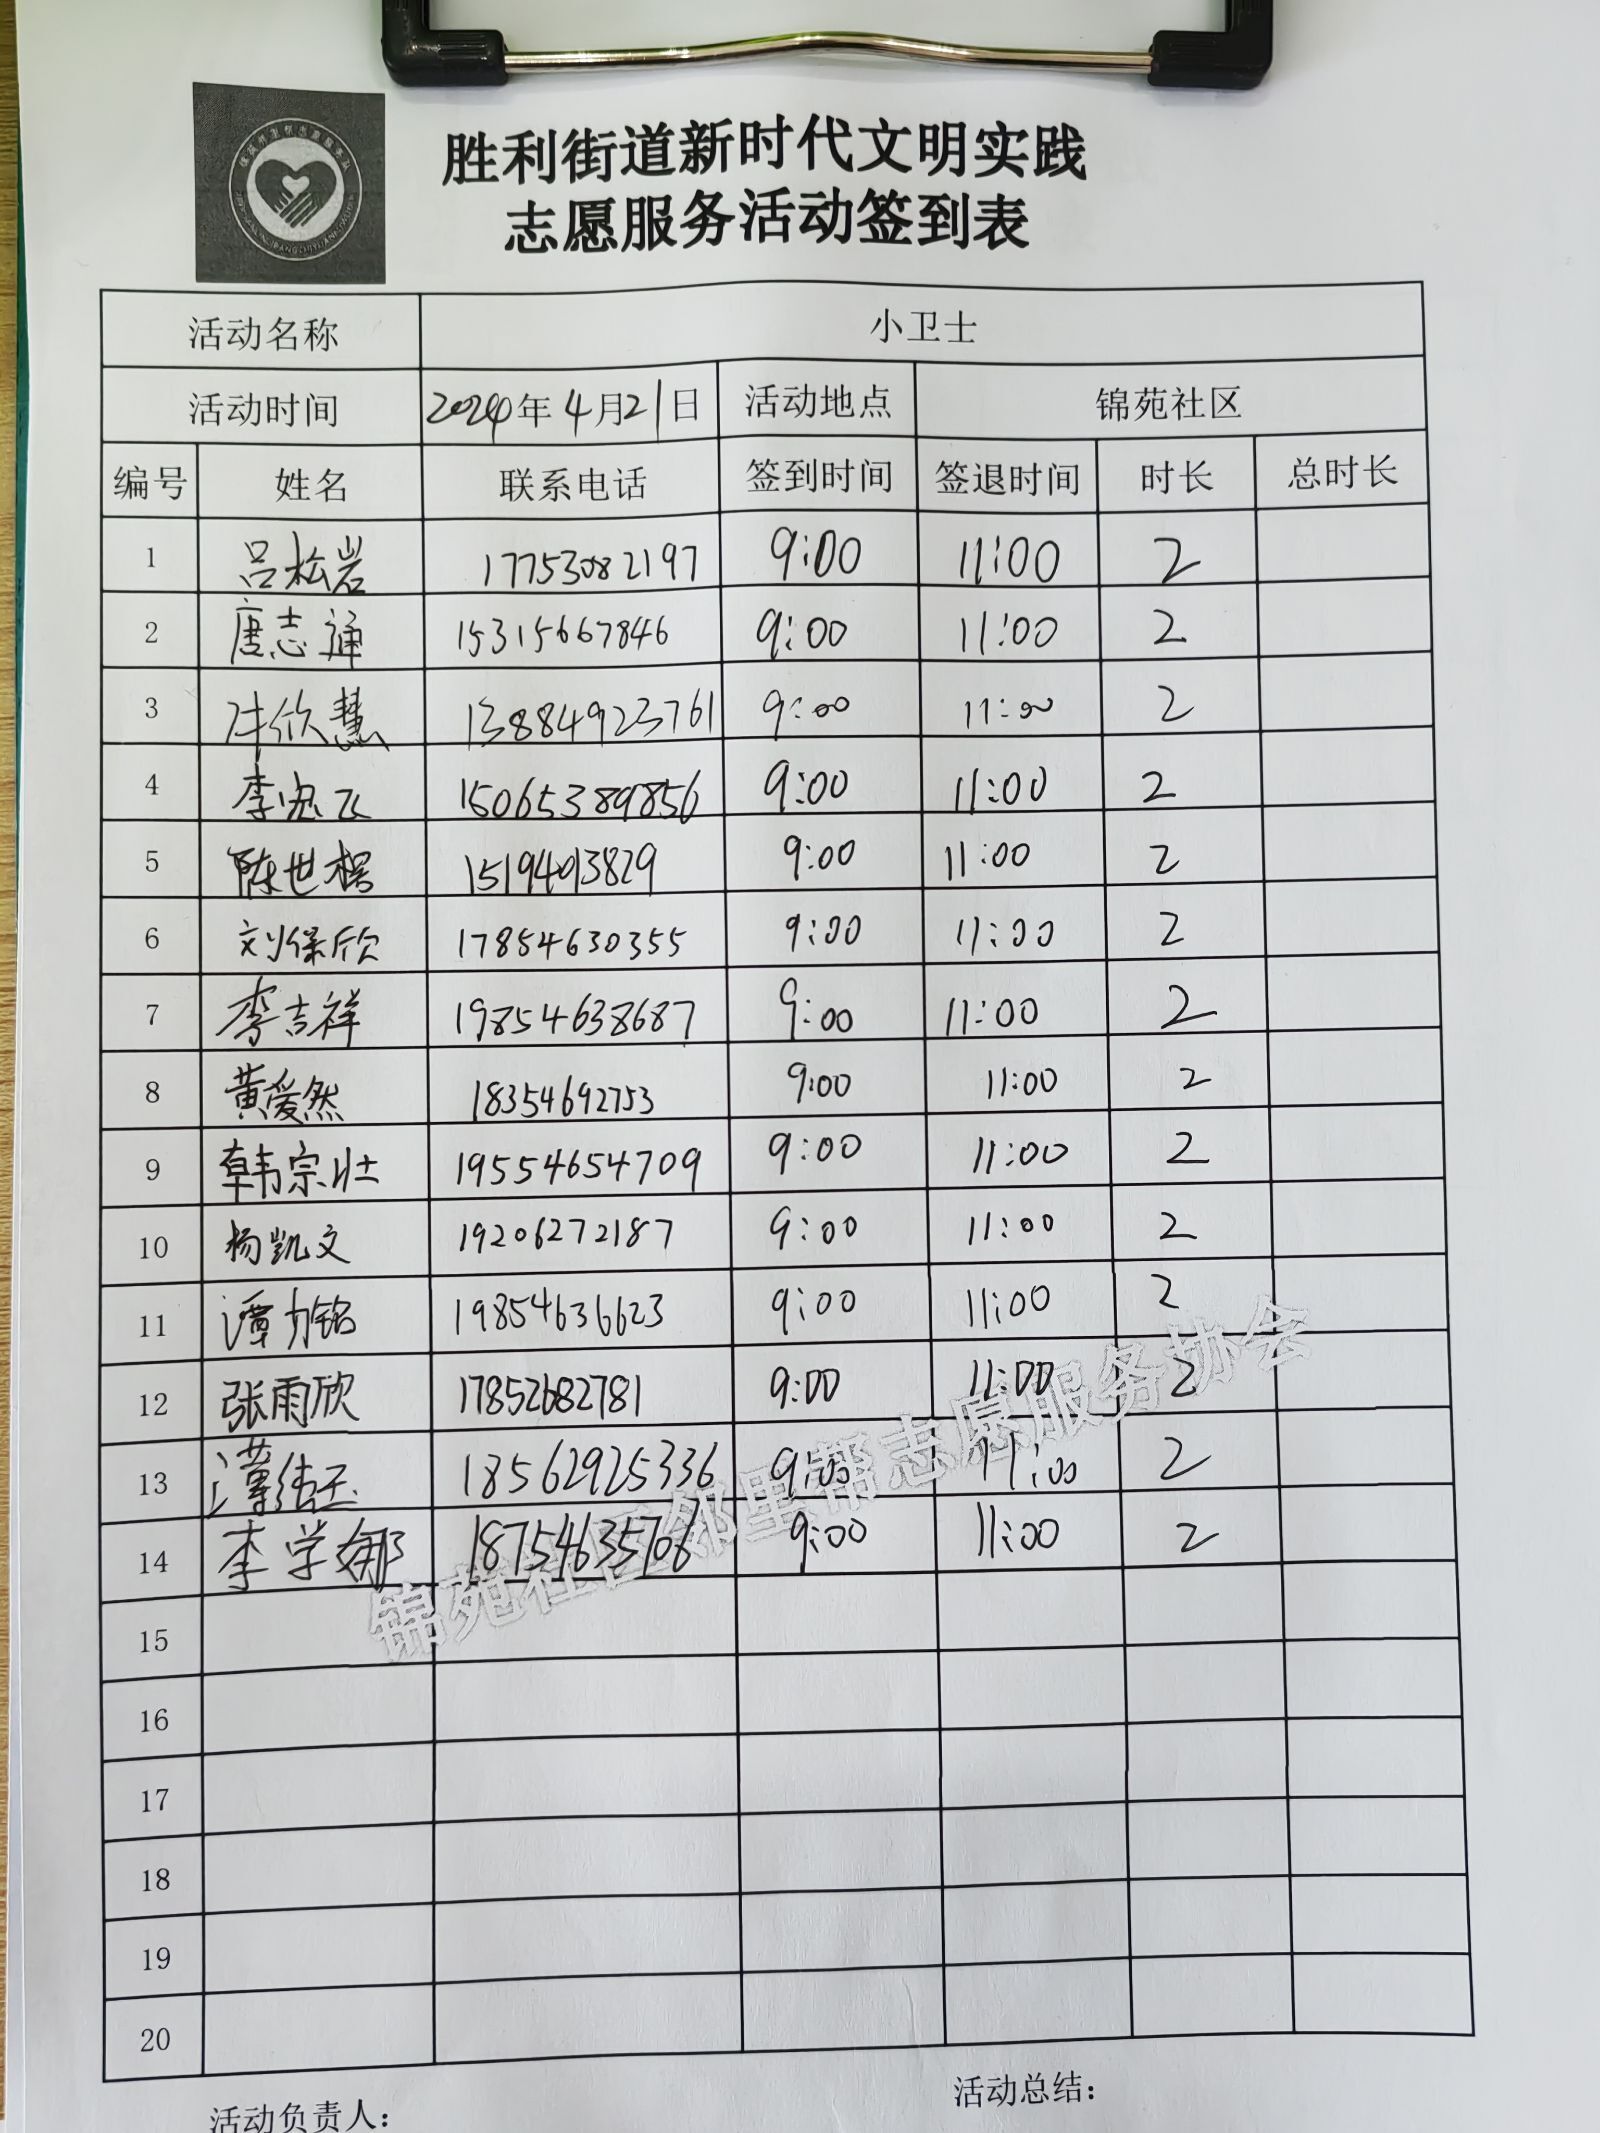 胜利街道新时代文明实践
志愿服务活动签到表
活动名称 小卫士
活动时间 2024年4月21日 活动地点 锦苑社区
编号 姓名 联系电话 签到时间 签退时间 时长 总时长
1 吕松岩 17753082197 9:00 11:00 2
2 唐志通 15315667846 9:00 11:00 2
3 欣慧 13884923761 9:00 11:00 2
4 李忠飞 15065389856 9:00 11:00 2
5 陈世楷 15194013829 9:00 11:00 2
6 刘保欣 17854630355 9:00 11:00 2
7 李吉祥 19854638687 9:00 11:00 2
8 黄爱然 18354692753 9:00 11:00 2
9 韩宗壮 19554654709 9:00 11:00 2
10 杨凯文 19206272187 9:00 11:00 2
11 谭力铭 19854636623 9:00 11:00 2
12 张雨欣 17852682781 9:00 11:00 2
13 18562925336 9:00 11:00 2
14 李学娜 18754635708 9:00 11:00 2
15
16
17
18
19
20
锦苑社区邻里帮志愿服务协会
活动负责人： 活动总结：